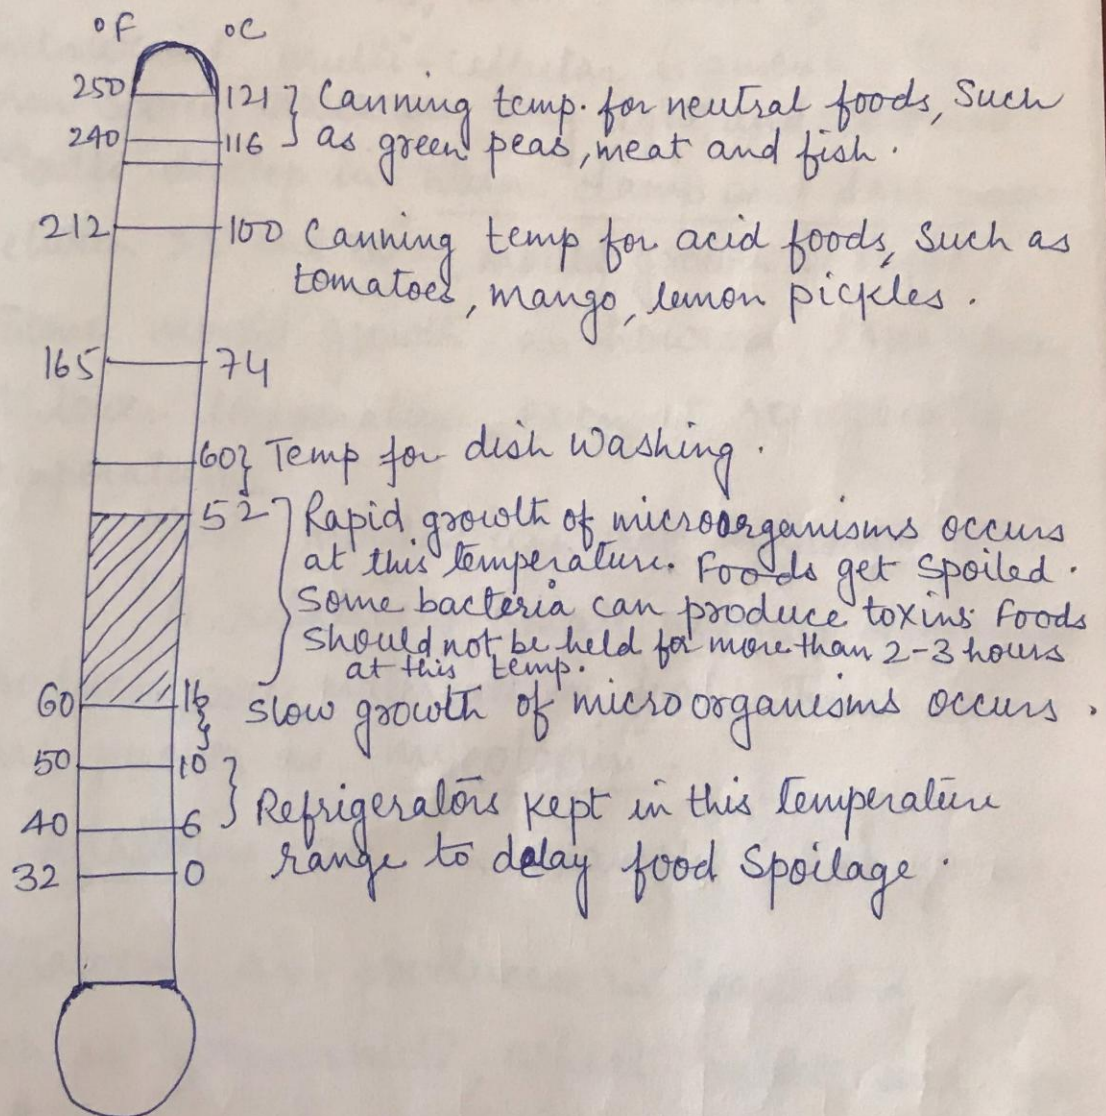 °F °C
250 121 } Canning temp. for neutral foods, Such
240 116 as green peas, meat and fish.
212 100 Canning temp for acid foods, Such as
tomatoes, mango, lemon pickles.
165 74
60 } Temp for dish Washing.
52 ] Rapid growth of microorganisms occurs
at this temperature. Foods get Spoiled.
Some bacteria can produce toxins Foods
Should not be held for more than 2-3 hours
at this temp.
60 16 } Slow growth of microorganisms occurs.
50 10 }
Refrigerators kept in this temperature
40 6
range to delay food Spoilage.
32 0